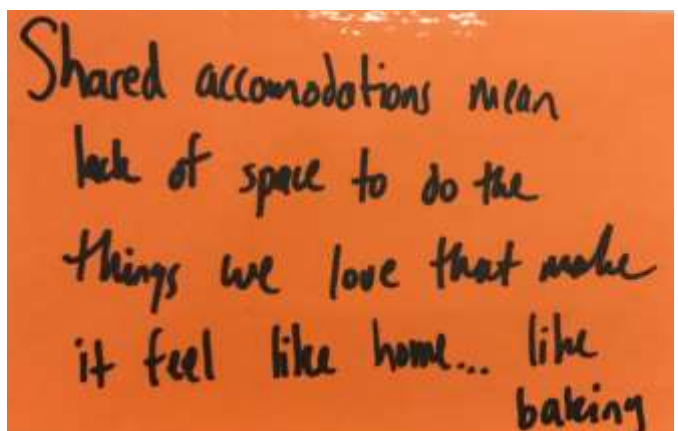 Shared accomodations mean
lack of space to do the
things we love that make
it feel like home... like
baking